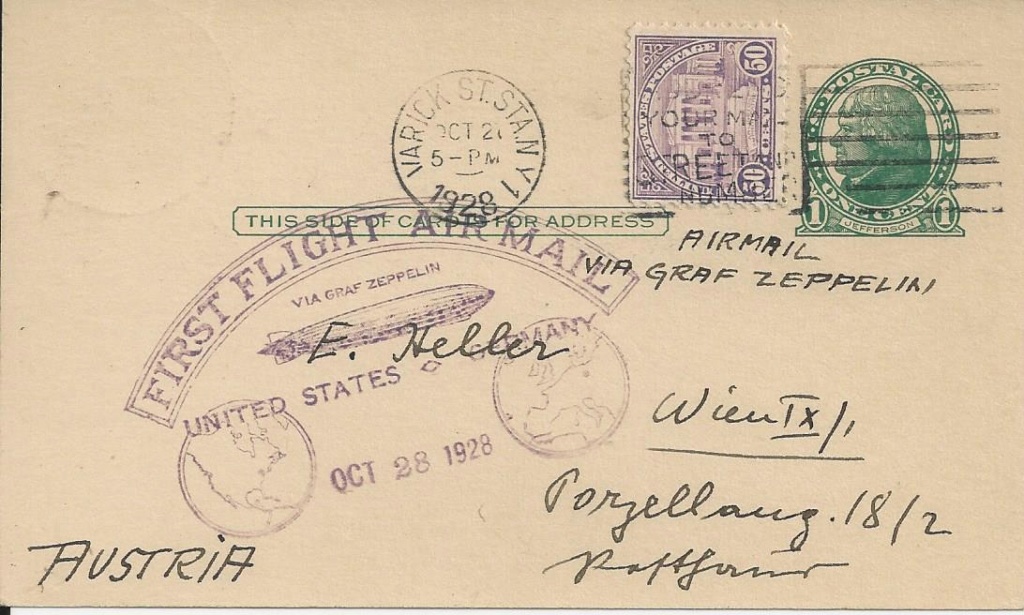 VARICK ST. STA. N Y 1
OCT 2
5-PM
1928
UNITED STATES POSTAGE
50
50
YOUR MAIL
TO
STREET AND
NUMBER
U·S·POSTAL CARD
1 ONE CENT 1
JEFFERSON
THIS SIDE OF CARD IS FOR ADDRESS
FIRST FLIGHT AIR MAIL
VIA GRAF ZEPPELIN
UNITED STATES GERMANY
OCT 28 1928
AIRMAIL
VIA GRAF ZEPPELIN
E. Heller
Wien IX/1
Porzellang. 18/2
AUSTRIA